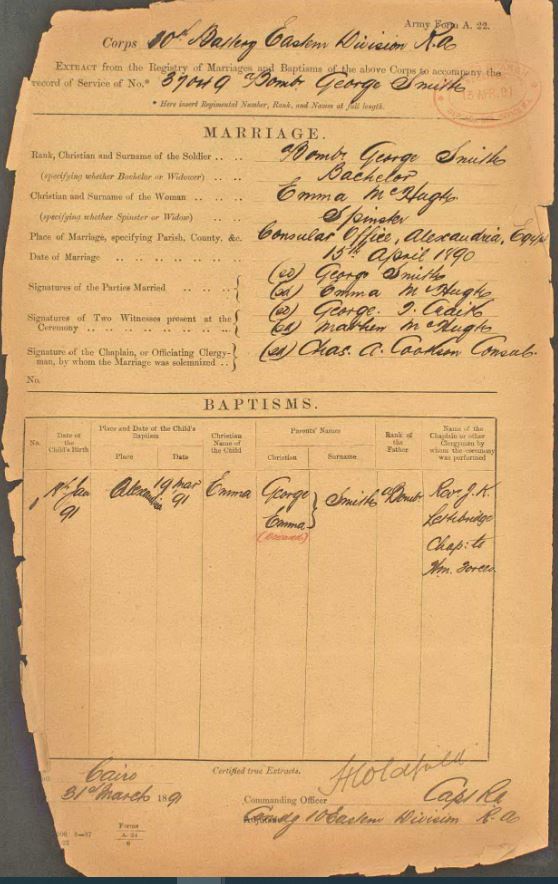 Army Form A. 22.
Corps 10th Battery Eastern Division R.A
EXTRACT from the Registry of Marriages and Baptisms of the above Corps to accompany the
record of Service of No.* 37049 a/Bombr George Smith
* Here insert Regimental Number, Rank, and Names at full length.
15 APR. 91
MARRIAGE.
Rank, Christian and Surname of the Soldier .. .. a/Bombr George Smith
(specifying whether Bachelor or Widower) .. .. Bachelor
Christian and Surname of the Woman .. .. .. Emma McHugh
(specifying whether Spinster or Widow) .. .. Spinster
Place of Marriage, specifying Parish, County, &c. Consular Office, Alexandria, Egypt
Date of Marriage .. .. .. .. .. 15th April 1890
Signatures of the Parties Married .. .. .. (sd) George Smith
(sd) Emma McHugh
Signatures of Two Witnesses present at the Ceremony .. .. (sd) George. J.
(sd) McHugh
Signature of the Chaplain, or Officiating Clergy-
man, by whom the Marriage was solemnized .. (sd) Chas. A. Cookson Consul.
No.
BAPTISMS.
No. Date of the Child's Birth Place and Date of the Child's Baptism Place Date Christian Name of the Child Parents' Names Christian Surname Rank of the Father Name of the Chaplain or other Clergyman by whom the ceremony was performed
1 Jan 91 Alexandria 19 Mar 91 Emma George Emma Smith a/Bombr Rev. J.K. Lethbridge Chap: to Hm. Forces.
Certified true Extracts.
Cairo
31st March 1891
Commanding Officer
Capt RA
Comdg 10 Eastern Division R.A
Forms
A. 24